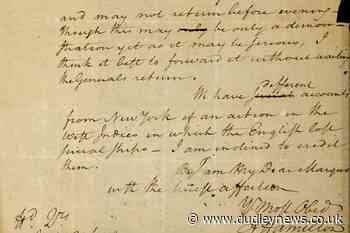 and may not return before evening
though this may only be only a demon-
stration yet as it may be serious, I
think it best to forward it without waiting
the Generals return.
different
We have several accounts
from New York of an action in the
West Indies in which the English lost
several ships - I am inclined to credit
them.
I am My Dear Marquis
with the truest affection
Yr Most Obed
A Hamilton
Hd Qrs
© www.dudleynews.co.uk